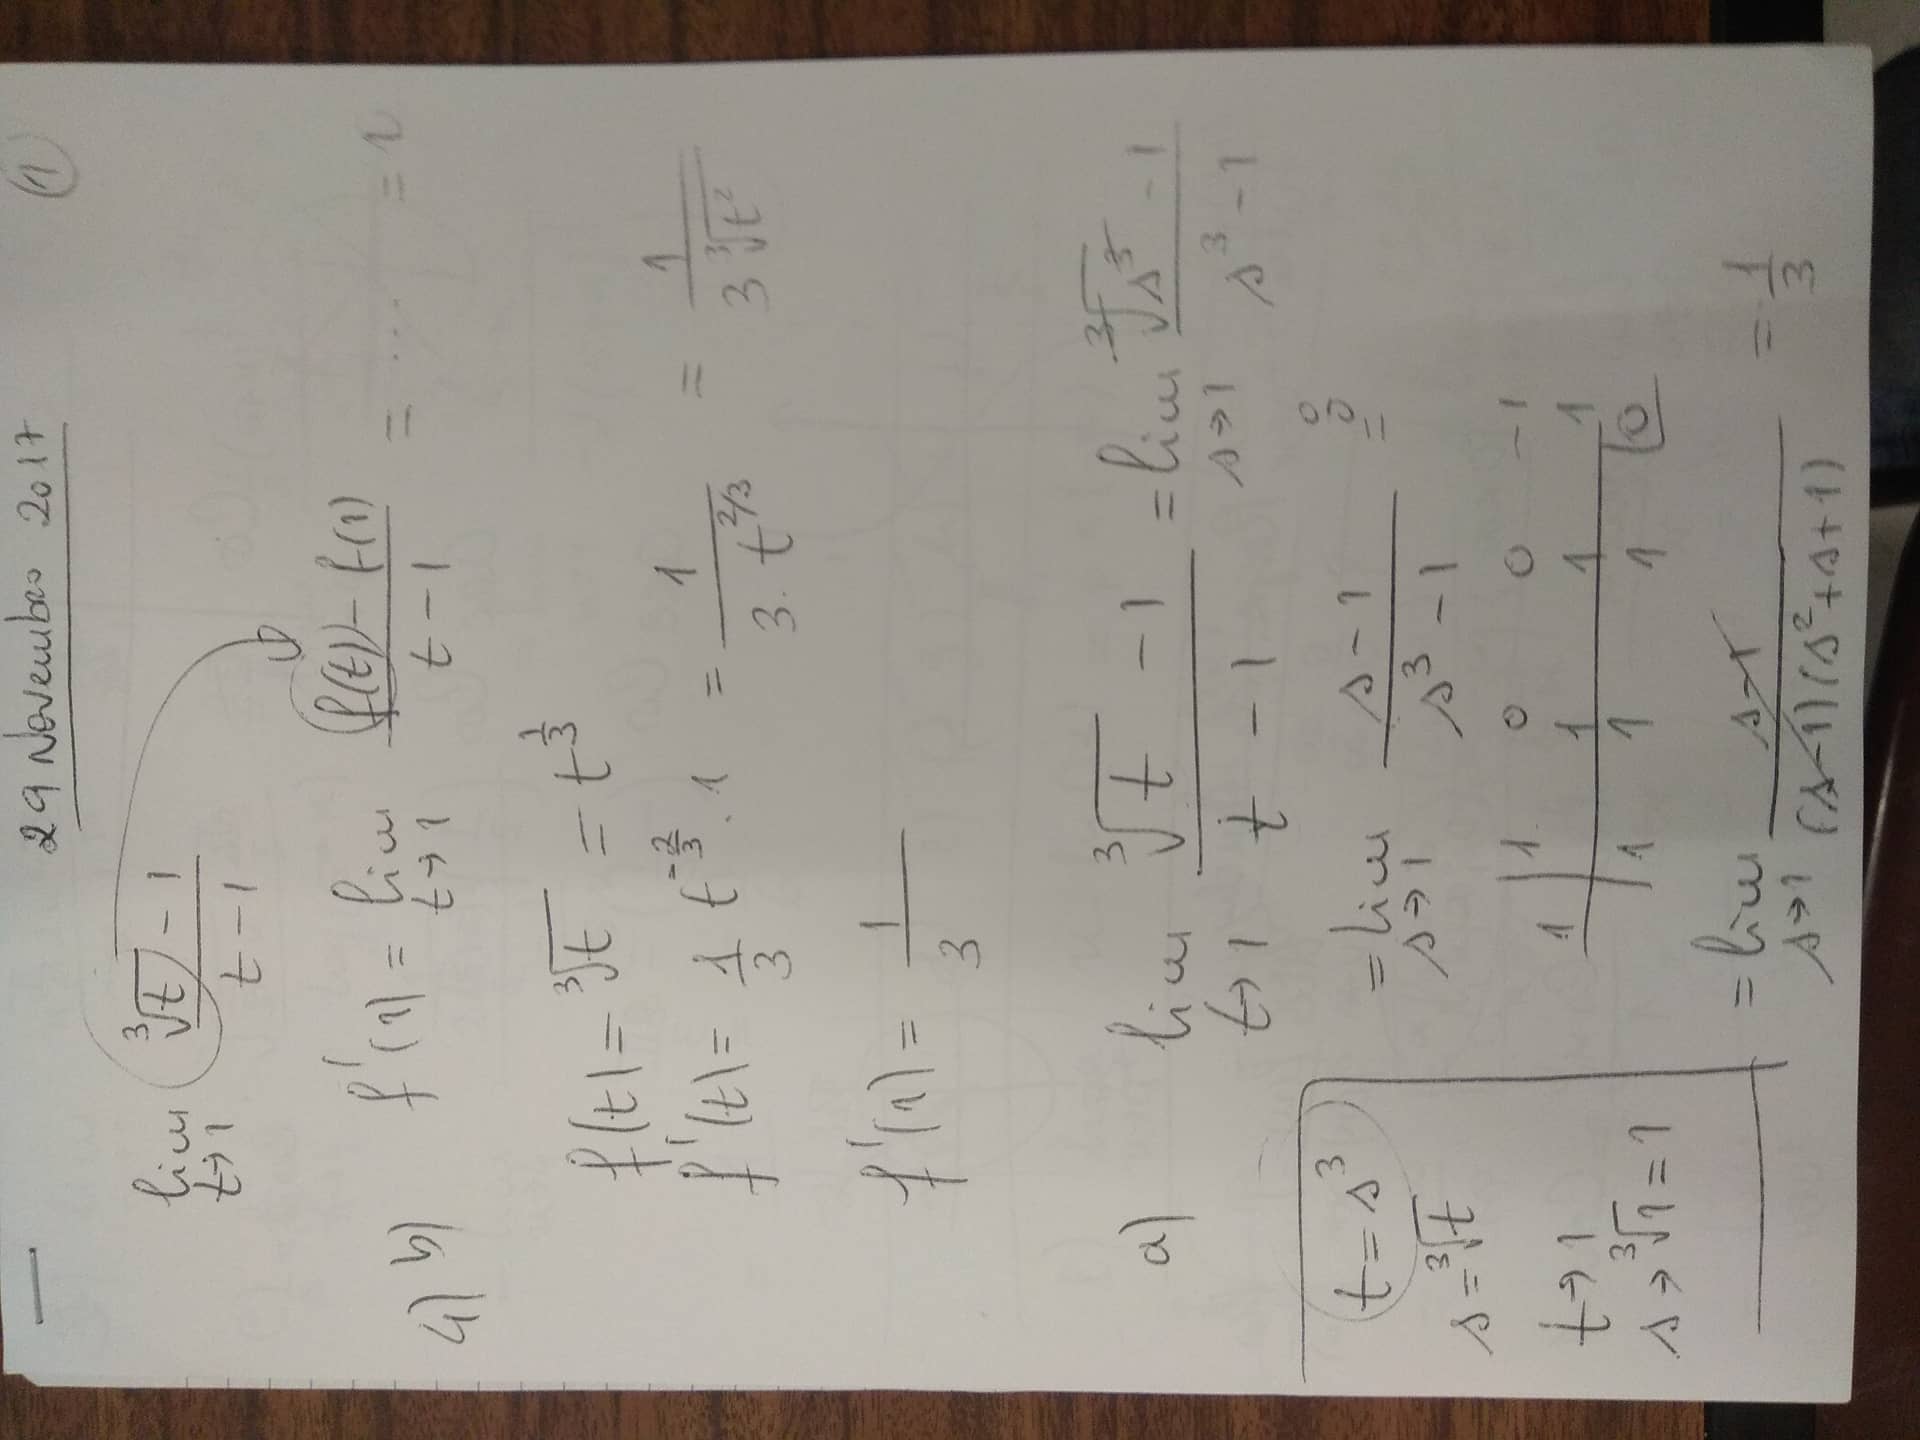 29 Novembro 2017 (1)
lim t→1 (∛t - 1)/(t - 1)
4) b) f'(1) = lim t→1 (f(t) - f(1))/(t - 1) = ... =
f(t) = ∛t = t^(1/3)
f'(t) = 1/3 t^(-2/3) . 1 = 1/(3. t^(2/3)) = 1/(3 ∛t²)
f'(1) = 1/3
a) lim t→1 (∛t - 1)/(t - 1) = lim s→1 (∛s³ - 1)/(s³ - 1)
t = s³
s = ∛t
t→1
s→∛1 = 1
= lim s→1 (s - 1)/(s³ - 1) = 0/0
1 0 0 -1
1 | 1 1 1
1 1 1 |0
= lim s→1 (s-1)/((s-1)(s²+s+1)) = 1/3